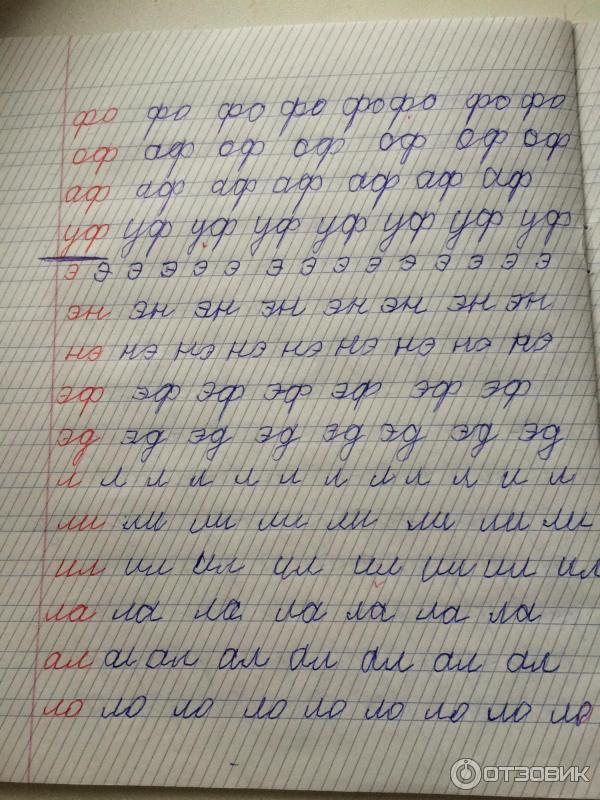 фо фо фо фо фо фо фо фо
оф аф оф оф оф оф оф
аф аф аф аф аф аф аф
уф уф уф уф уф уф уф уф
э э э э э э э э э э э э э э э
эн эн эн эн эн эн эн эн
нэ нэ нэ нэ нэ нэ нэ нэ нэ
эф эф эф эф эф эф эф
эд эд эд эд эд эд эд эд
л л л л л л л л л л и л
ли ли ли ли ли ли ли ли
ил ил ил ил ил ии ил ил
ла ла ла ла ла ла ла
ал ал ал ал ал ал ал ал
ло ло ло ло ло ло ло ло ло
ОТЗОВИК